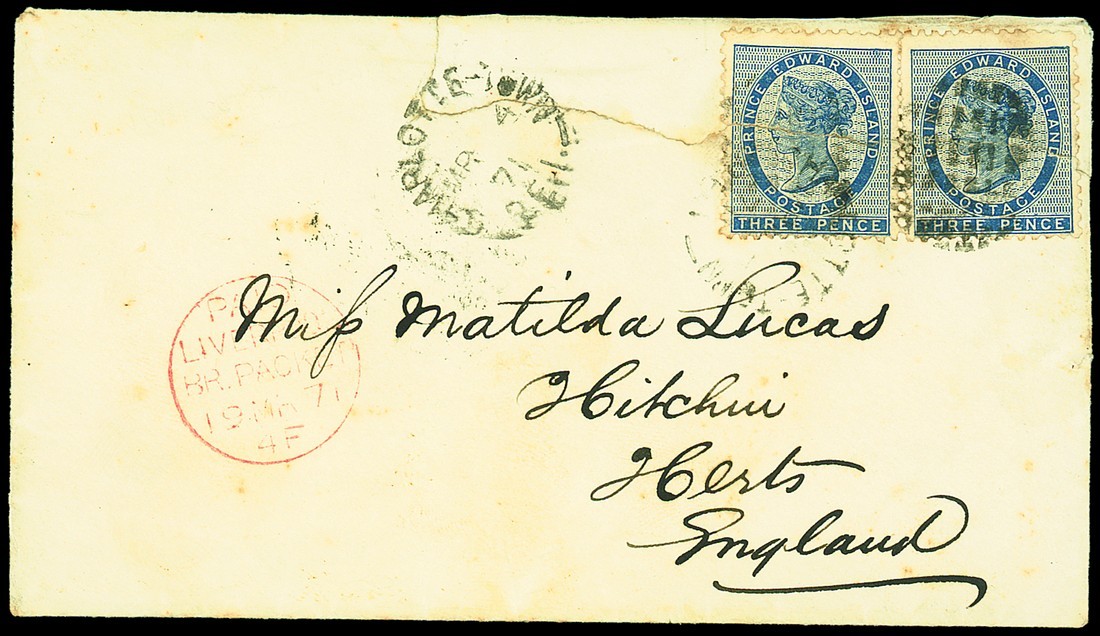 CHARLOTTE-TOWN
MR 4
71
P.E.I.
PRINCE EDWARD ISLAND
POSTAGE
THREE PENCE
PRINCE EDWARD ISLAND
POSTAGE
THREE PENCE
PAID
BR. PACKET
19 MR 71
4F
Miſs Matilda Lucas
Hitchin
Herts
England